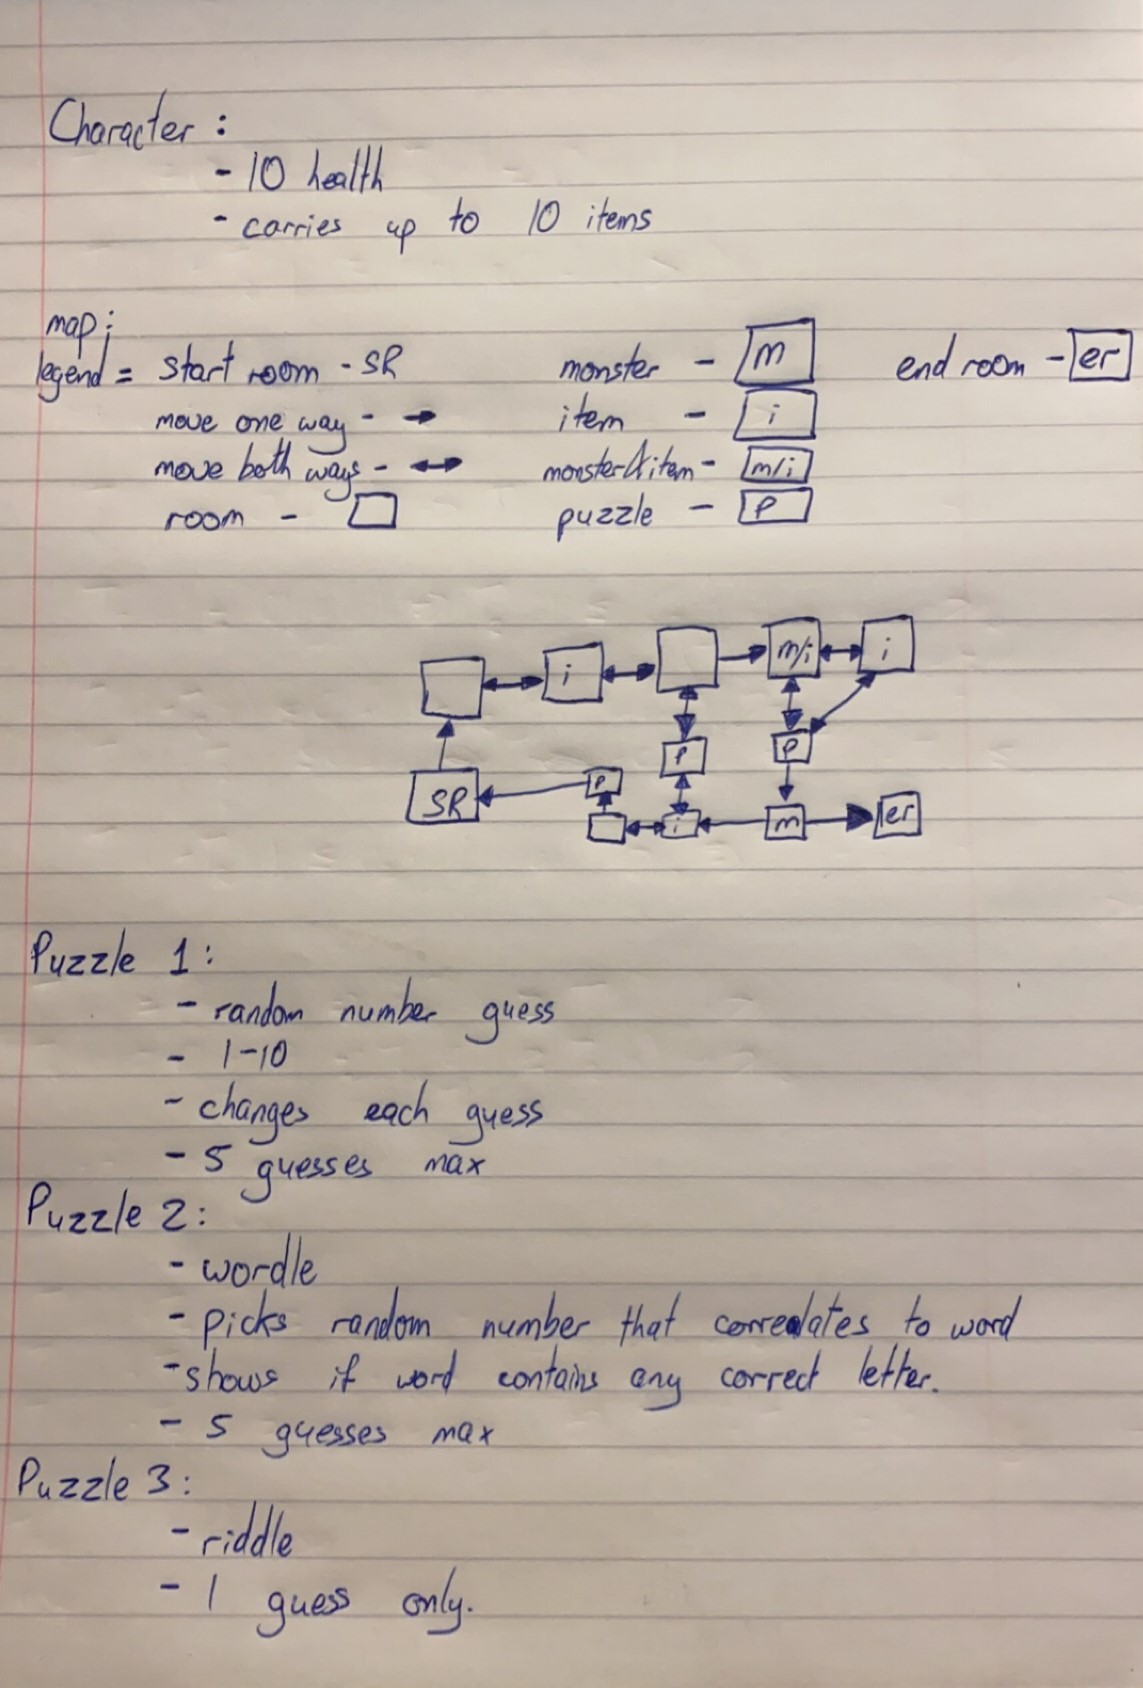 Character :
- 10 health
- carries up to 10 items
map :
legend = start room - SR monster - m end room - er
move one way - → item - i
move both ways - ↔ monster & item - m/i
room - puzzle - P
i m/i i
P P
SR P
i m er
Puzzle 1 :
- random number guess
- 1-10
- changes each guess
- 5 guesses max
Puzzle 2 :
- wordle
- picks random number that correlates to word
- shows if word contains any correct letter.
- 5 guesses max
Puzzle 3 :
- riddle
- 1 guess only.